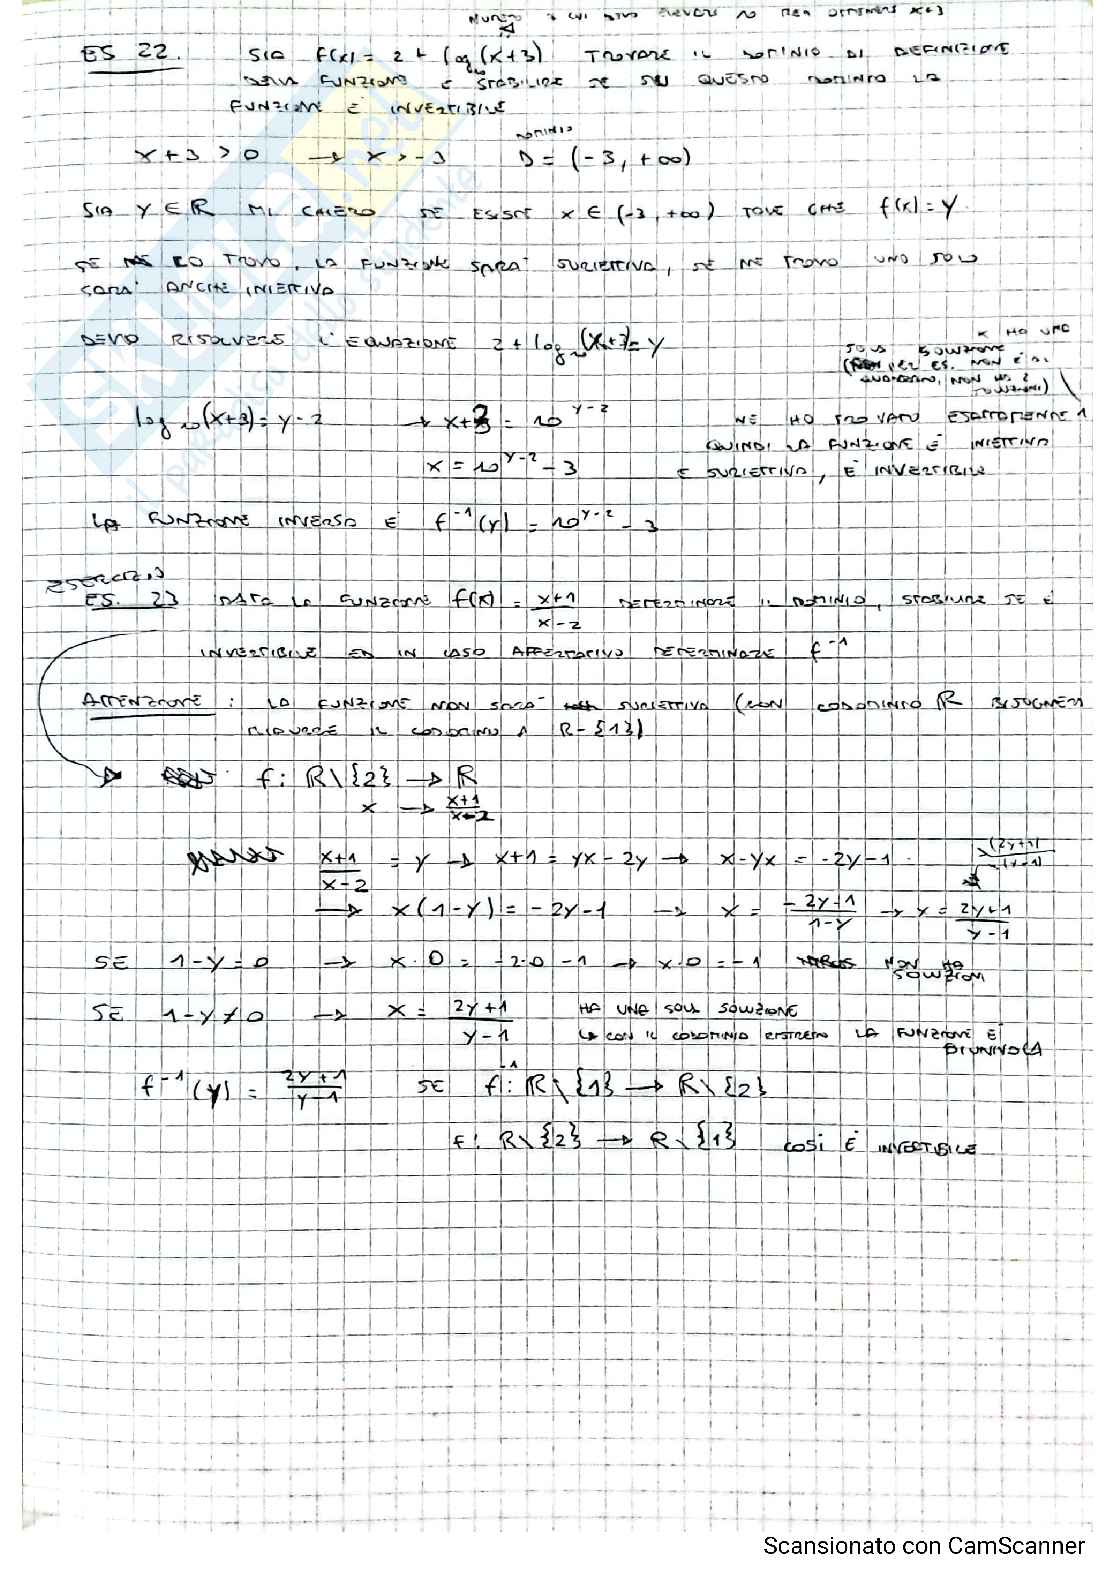 NUMERO A CUI DEVO ELEVARE 10 PER OTTENERE x+3
ES 22. SIA f(x) = 2 + log₁₀(x+3) TROVARE IL DOMINIO DI DEFINIZIONE
DELLA FUNZIONE E STABILIRE SE SU QUESTO DOMINIO LA
FUNZIONE È INVERTIBILE
DOMINIO
x+3 > 0 → x > -3 D = (-3, +∞)
SIA Y ∈ R MI CHIEDO SE ESISTE x ∈ (-3, +∞) TALE CHE f(x) = Y
SE LO TROVO, LA FUNZIONE SARA' SURIETTIVA, SE NE TROVO UNO SOLO
SARA' ANCHE INIETTIVA
DEVO RISOLVERE L'EQUAZIONE 2 + log₁₀(x+3) = Y
X HO UNA
SOLA SOLUZIONE
(PER ES. NON È DI
QUADRATO, NON HO 2
SOLUZIONI)
log₁₀(x+3) = y-2 → x+3 = 10^(y-2) NE HO TROVATO ESATTAMENTE 1
QUINDI LA FUNZIONE È INIETTIVA
x = 10^(y-2) - 3 E SURIETTIVA, È INVERTIBILE
LA FUNZIONE INVERSA È f⁻¹(y) = 10^(y-2) - 3
ESERCIZIO
ES. 23 DATA LA FUNZIONE f(x) = (x+1)/(x-2) DETERMINARE IL DOMINIO, STABILIRE SE È
INVERTIBILE ED IN CASO AFFERMATIVO DETERMINARE f⁻¹
ATTENZIONE: LA FUNZIONE NON SARA' SURIETTIVA (CON CODOMINIO R BISOGNERÀ
RIDURRE IL CODOMINIO A R-{1})
f: R\{2} → R
x → (x+1)/(x-2)
(x+1)/(x-2) = y → x+1 = yx - 2y → x - yx = -2y - 1
→ x(1-y) = -2y-1 → x = -(2y+1)/(1-y) → x = (2y+1)/(y-1)
SE 1-y=0 → x·0 = -2·0 -1 → x·0 = -1 NON HA
SOLUZIONI
SE 1-y≠0 → x = (2y+1)/(y-1) HA UNA SOLA SOLUZIONE
↳ CON IL CODOMINIO RISTRETTO LA FUNZIONE È
BIUNIVOCA
f⁻¹(y) = (2y+1)/(y-1) SE f⁻¹: R\{1} → R\{2}
f: R\{2} → R\{1} COSÌ È INVERTIBILE
Scansionato con CamScanner